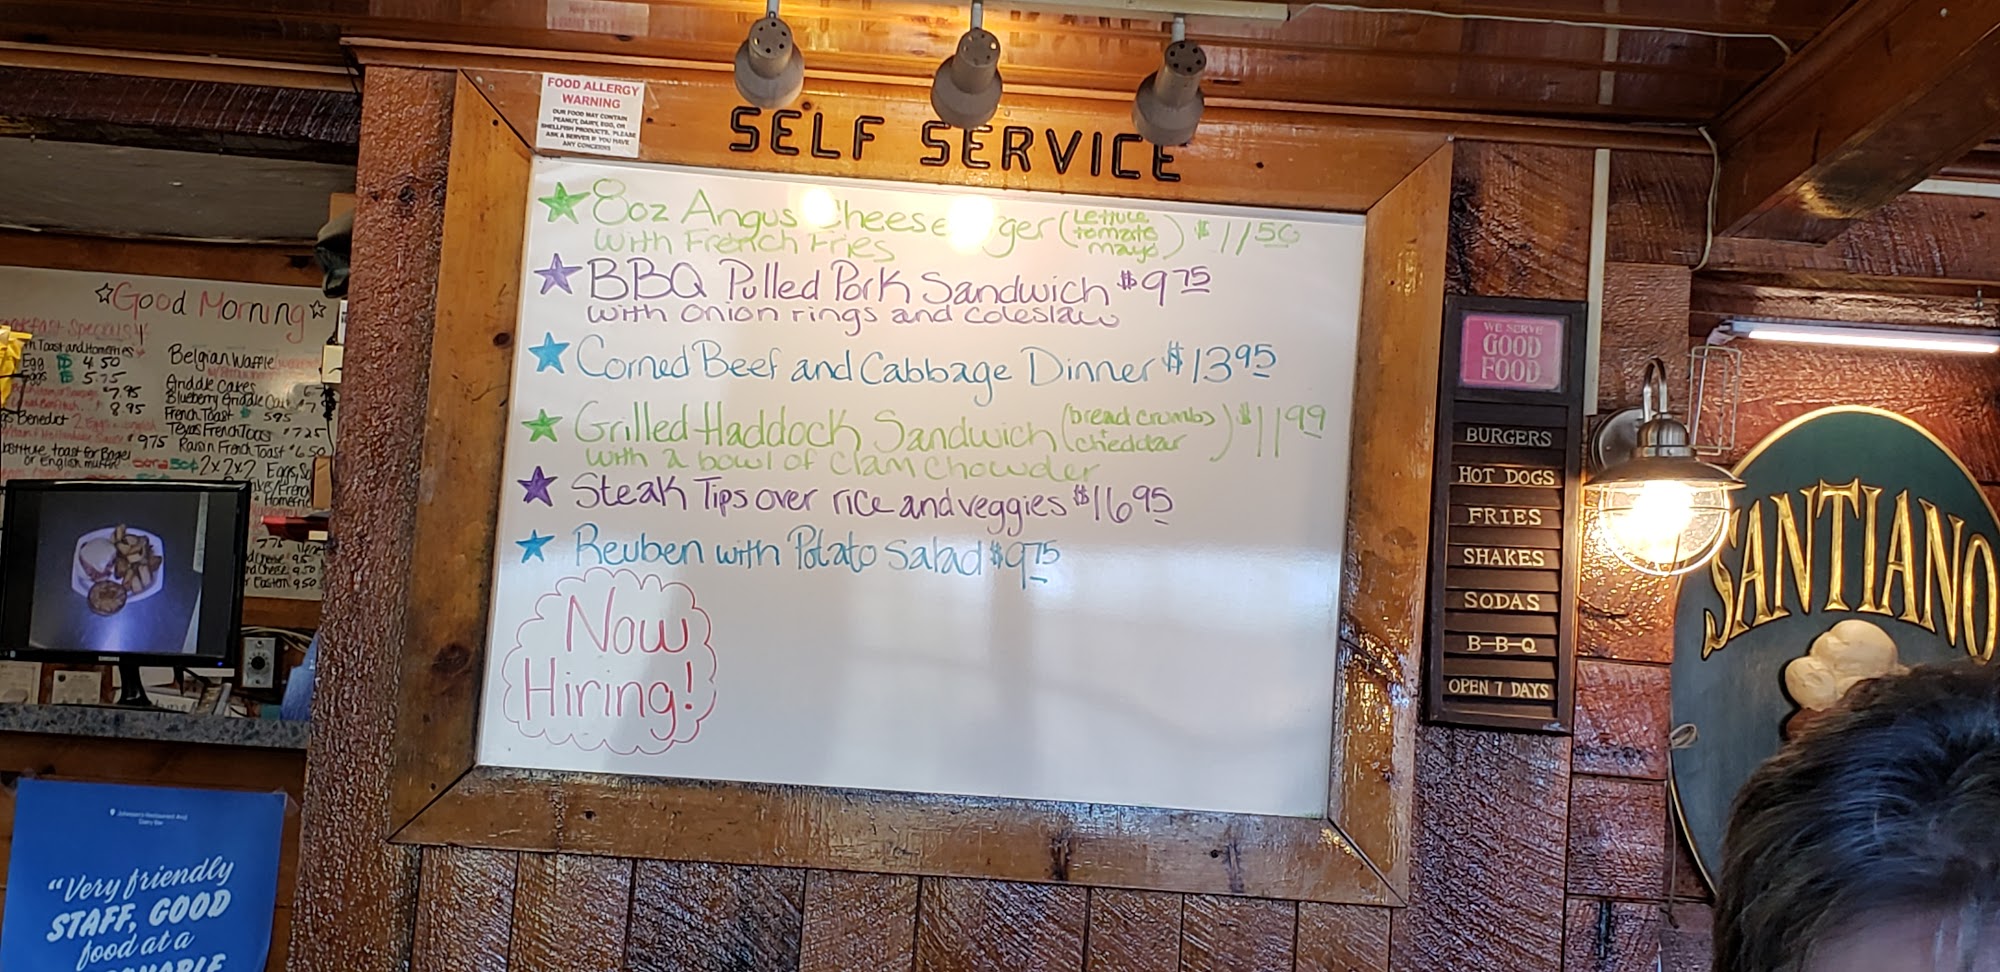 FOOD ALLERGY
WARNING
OUR FOOD MAY CONTAIN
PEANUT, DAIRY, EGG, OR
SHELLFISH PRODUCTS. PLEASE
ASK A SERVER IF YOU HAVE
ANY CONCERNS
SELF SERVICE
8oz Angus Cheese ger (Lettuce tomato mayo) $11 50
with French Fries
BBQ Pulled Pork Sandwich $9 75
with onion rings and coleslaw
Corned Beef and Cabbage Dinner $13 95
Grilled Haddock Sandwich (bread crumbs cheddar) $11 99
with a bowl of clam chowder
Steak Tips over rice and veggies $16 95
Reuben with Potato Salad $9 75
Now
Hiring!
Good Morning
Specials
Toast and Homefries
Egg 4.50
Eggs 5.75
7.95
8.95
Benedict
$9.75
toast for Bagel
or English muffin
Belgian Waffle
Griddle Cakes
Blueberry Griddle
French Toast 5.95
Texas French Toast $7.25
Raisin French Toast $6.50
2x2x2 Eggs,
9.50
WE SERVE
GOOD
FOOD
BURGERS
HOT DOGS
FRIES
SHAKES
SODAS
B-B-Q
OPEN 7 DAYS
SANTIANO
Johnson's Restaurant And
Dairy Bar
"Very friendly
STAFF, GOOD
food at a